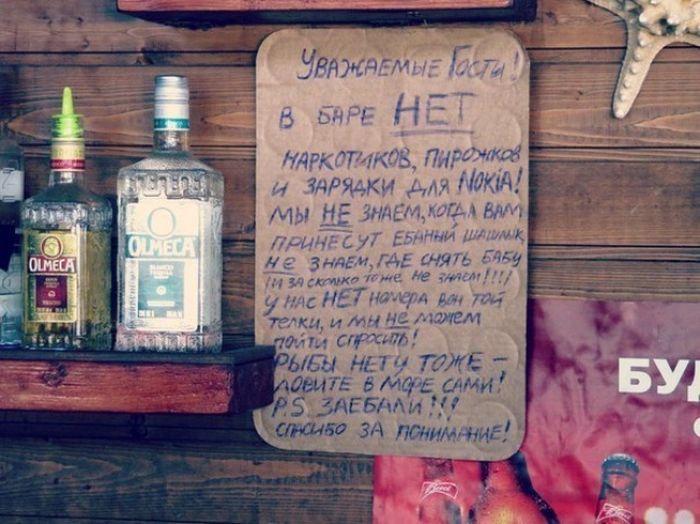 Уважаемые Гости!
В БАРЕ НЕТ
НАРКОТИКОВ, ПИРОЖКОВ
И ЗАРЯДКИ ДЛЯ NOKIA!
МЫ НЕ ЗНАЕМ, КОГДА ВАМ
ПРИНЕСУТ ЕБАНЫЙ ШАШЛЫК,
НЕ ЗНАЕМ, ГДЕ СНЯТЬ БАБУ
(И ЗА СКОЛЬКО ТОЖЕ НЕ ЗНАЕМ!!!!
У НАС НЕТ НОМЕРА ВОН ТОЙ
ТЕЛКИ, И МЫ НЕ МОЖЕМ
ПОЙТИ СПРОСИТЬ!
РЫБЫ НЕТУ ТОЖЕ –
ЛОВИТЕ В МОРЕ САМИ!
P.S. ЗАЕБАЛИ!!!
СПАСИБО ЗА ПОНИМАНИЕ!
OLMECA
OLMECA
BLANCO
БУД